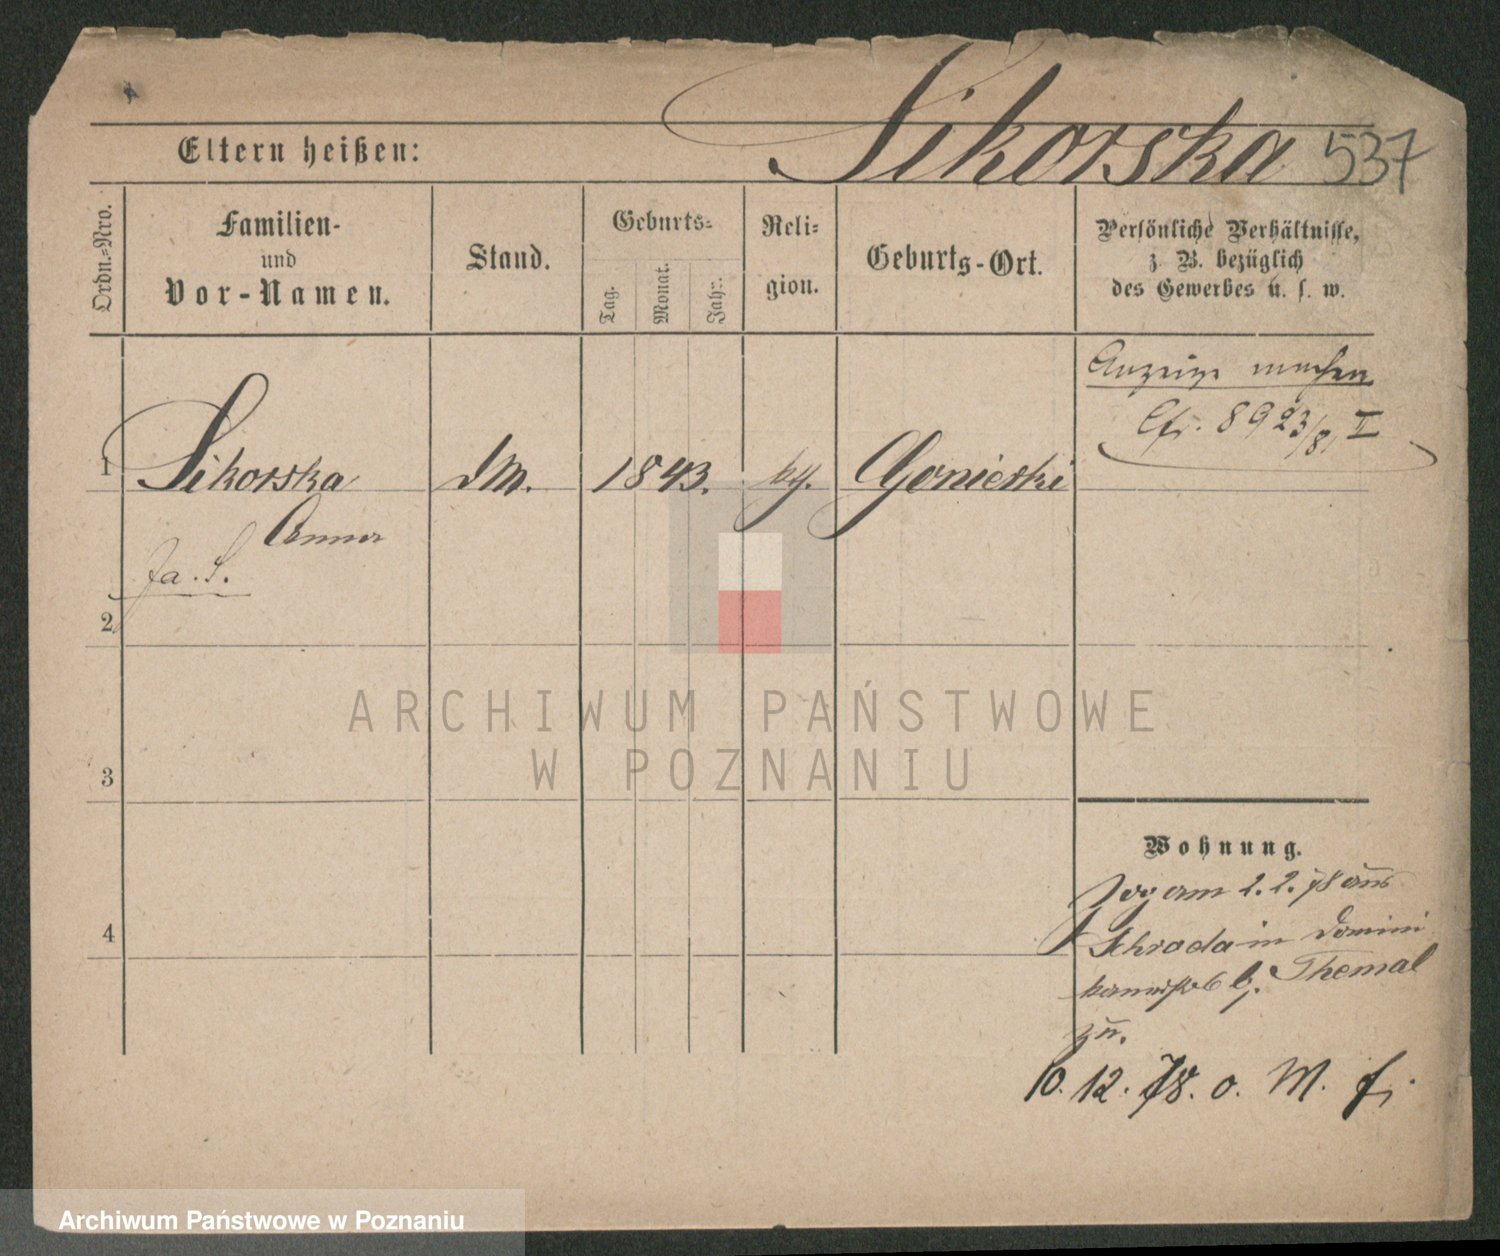 Sikorska 537
Eltern heißen:
Ordn.=Nro.
Familien-
und
Vor-Namen.
Stand.
Geburts=
Tag.
Monat.
Jahr.
Reli=
gion.
Geburts-Ort.
Persönliche Verhältnisse,
z. B. bezüglich
des Gewerbes u. s. w.
Anzeige machen
Cfr. 8923/81 II
1 Sikorska DM. 1843. kg. Gorzietki
Anna
fa. S.
2
3
4
ARCHIWUM PAŃSTWOWE
W POZNANIU
Wohnung.
Zog am 2.2.78 aus
Schroda in Domini
kanerstr 6 b. Themal
zu.
10. 12. 78. o. M. f.
Archiwum Państwowe w Poznaniu